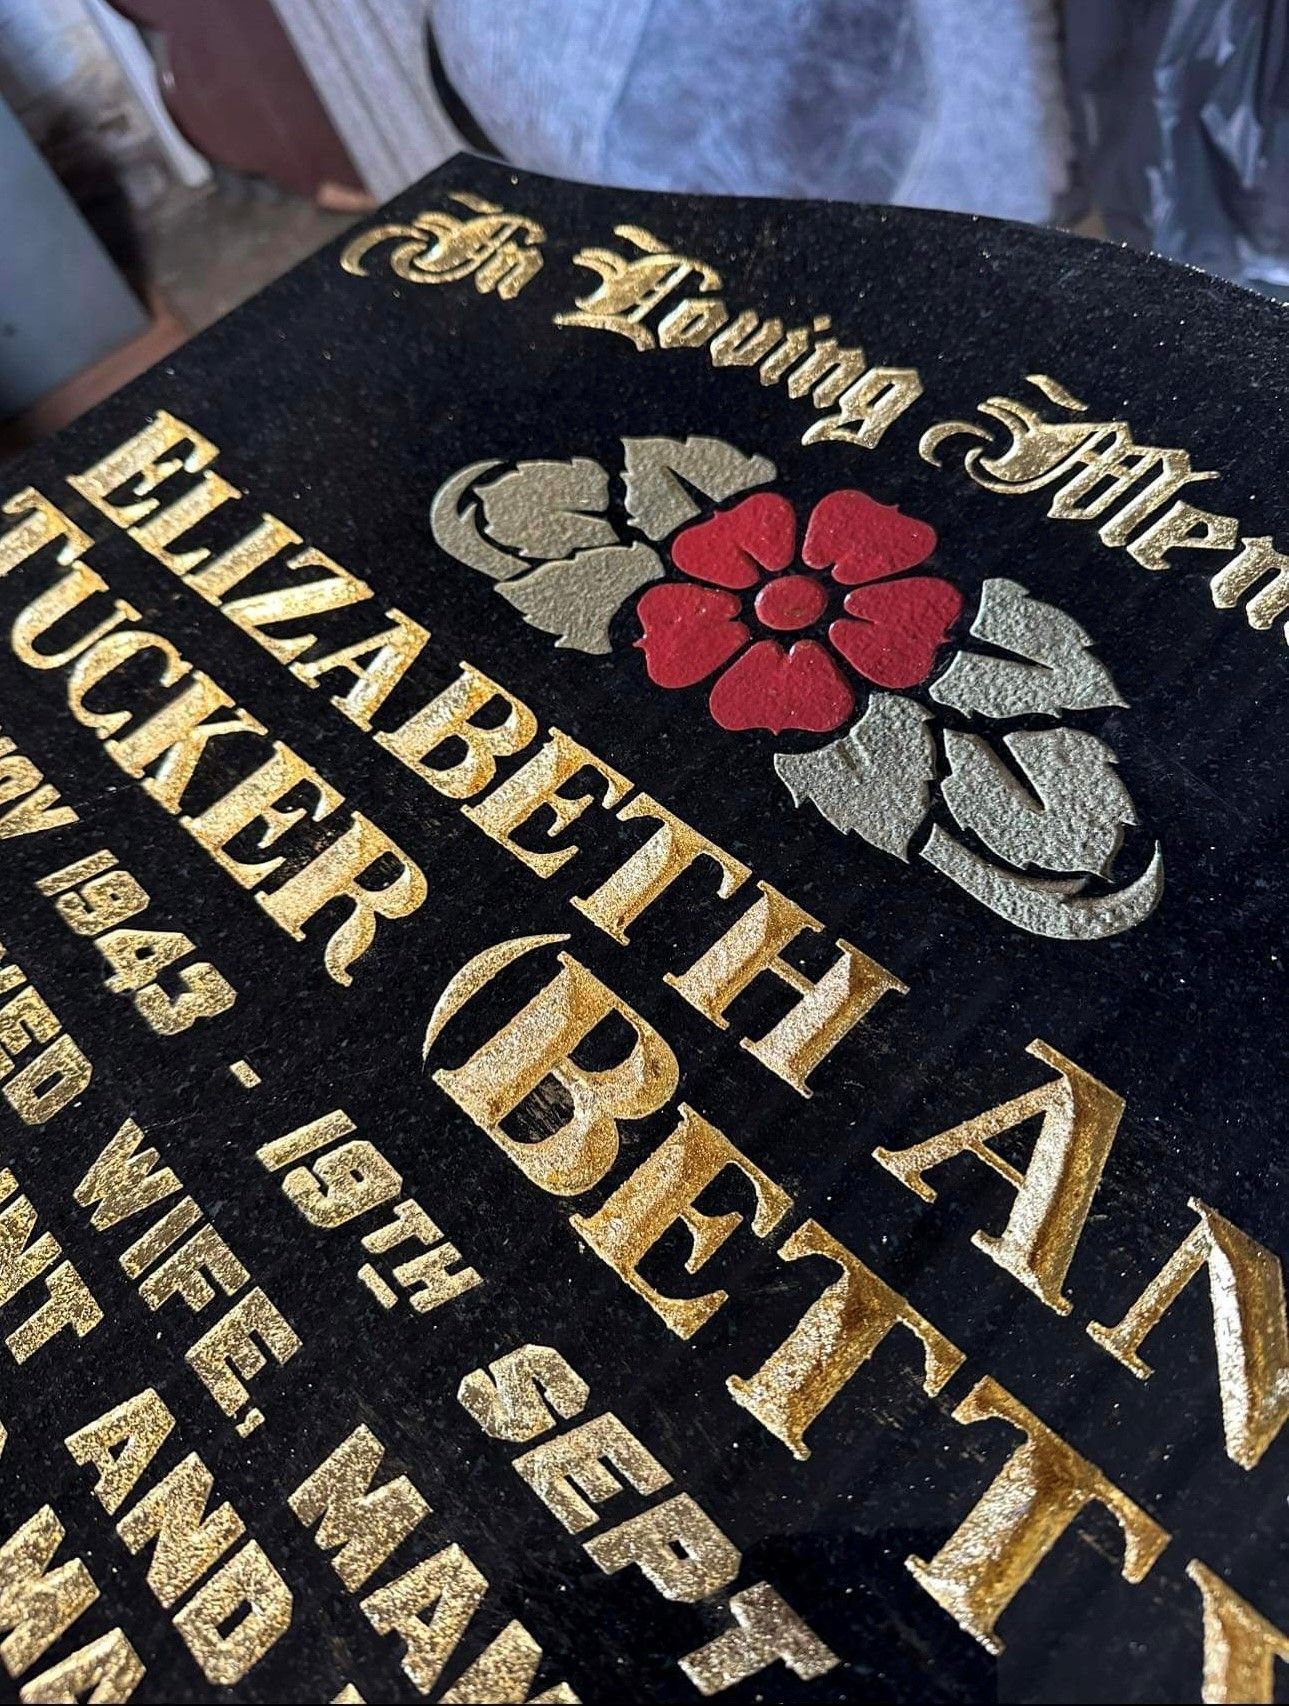 In Loving Mem
ELIZABETH AN
TUCKER (BETTY
1943 - 19TH SEPT
WIFE, MA
AND